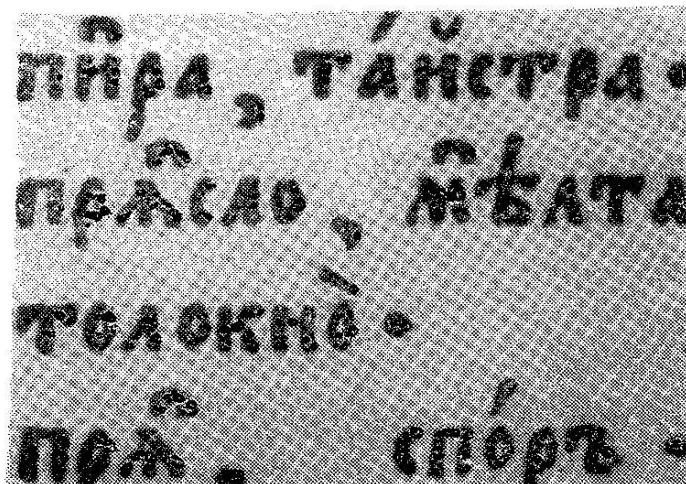 пи̑ра, та́йстра•
прѧ̑сло, м̑ѣ́лта
толокно̀•
прѧ̑. спо́ръ•